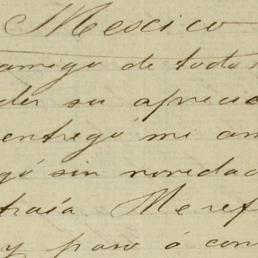 Mexico
amigo de todo
su aprecia
entregó mi am
gó sin novedad
traía. Me ref
y paso á con